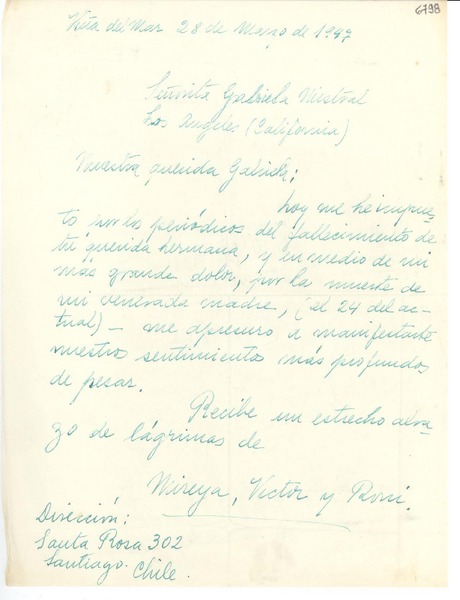 6798
Viña del Mar 28 de Marzo de 1947
Señorita Gabriela Mistral
Los Angeles (California)
Nuestra querida Gabriela:
hoy me he impues-
to por los periódicos del fallecimiento de
tu querida hermana, y en medio de mi
más grande dolor, por la muerte de
mi venerada madre, (el 24 del ac-
tual) - me apresuro a manifestarte
nuestros sentimientos más profundos
de pesar.
Recibe un estrecho abra-
zo de lágrimas de
Mireya, Victor y Rosi.
Dirección:
Santa Rosa 302
Santiago. Chile.